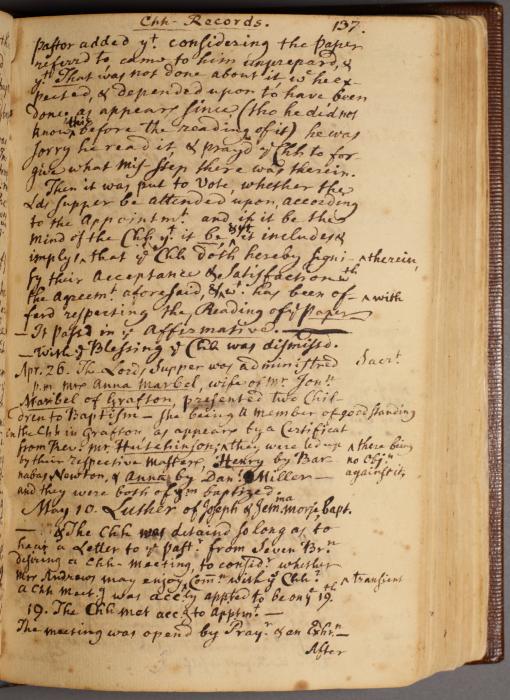 Chh- Records. 137.
Pastor added yt. considering the Paper
referrd to came to him unprepard, &
yt That was not done about it wc he ex-
pected, & depended upon to have been
done, as appears since (tho he did not
know this before the reading of it) he was
sorry he read it, & pray'd ye Chh to for
give what Mis step there was therein.
Then it was put to Vote, whether the
Lds Supper be attended upon, according
to the Appointmt. and if it be the
mind of the Chh yt it be, yt it includes &
implys ^ that ye Chh doth hereby signi- ^ therein,
fy their Acceptance & Satisfaction wth
the Agreemt aforesaid, & wt. has been of- ^ with
ferd respecting the Reading of ye Paper
— It Passd in ye Affirmative. —
— With ye Blessing ye Chh was dismissd.
Apr. 26. The Lords Supper was administred Sacrt.
p.m. Mrs Anna Marbel, wife of Mr. Jonn.
Marbel of Grafton, presented two Chil-
dren to Baptism — she being a member of good standing
in the Chh in Grafton as appears by a Certificat
from Revd. Mr. Hutchinson; ^ they were led up ^ there being
by their respective Masters, Henry by Bar no Objn.
nabas Newton, & Anna by Danl. Miller — against it,
and they were both of ym baptized.
May 10. Luther of Joseph & Jemma Morse bapt.
— & The Chh was detaind so long as to
hear a Letter to ye Pastr. from Seven Brn
desiring a Chh- meeting, to considr. whether
Mrs Andrews may enjoy ^ Comn. with ye Chh. ^ transient
A Chh Meetg was accly appted to be on ye 19th
19. The Chh met accg to Apptmt. —
The meeting was opend by Prayr. & an Exhrn —
After